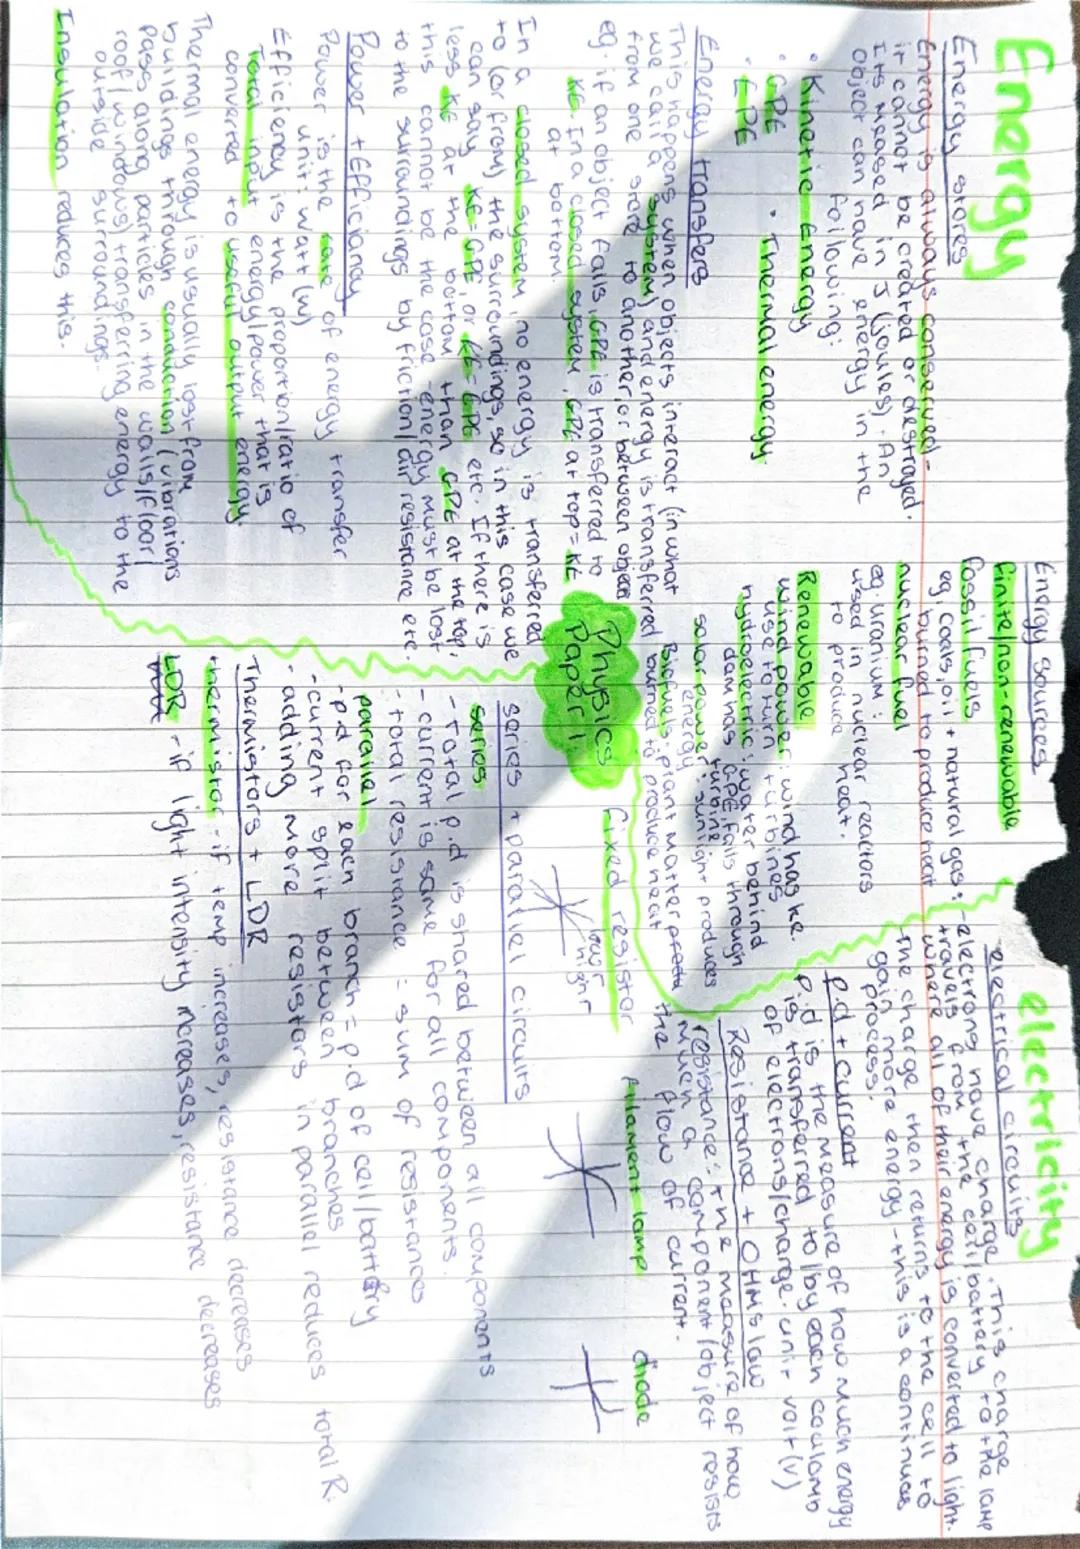 Energy
Energy stores
Energy is always conserved -
it cannot be created or destroyed.
Its meased in J (joules). An
object can have energy in the
following:
• Kinetic Energy
• GPE • Thermal energy.
• EPE
Energy transfers
This happens when objects interact (in what
we call a system) and energy is transferred
from one store to another, or between objects
eg. if an object falls, GPE is transferred to
KE. In a closed system, GPE at top = KE
at bottom.
In a closed system, no energy is transferred
to (or from) the surroundings so in this case we
can say KE = GPE, or KE = EPE etc. If there is
less KE at the bottom than GPE at the top,
this cannot be the case - energy must be lost
to the surroundings by friction/air resistance etc.
Power + Efficiancy
Power is the rate of energy transfer
unit: watt (W)
Efficiency is the proportion/ratio of
Total input energy/power that is
converted to useful output energy.
Thermal energy is usually lost from
buildings through conduction (vibrations
pass along particles in the walls/floor/
roof/windows) transferring energy to the
outside surroundings.
Insulation reduces this.
Energy sources
finite/non-renewable
fossil fuels
eg, coals, oil + natural gas:
burned to produce heat
nuclear fuel
eg. uranium:
used in nuclear reactors
to produce heat.
Renewable
wind power: wind has ke.
use to turn turbines
hydroelectric: water behind
dam has GPE, falls through
turbine
solar power: sunlight produces
energy
Biofuels: plant matter
burned to produce heat
Physics
Paper 1
electricity
electrical circuits
-electrons have charge. This charge
travels from the cell/battery to the lamp
where all of their energy is converted to light.
-The charge then returns to the cell to
gain more energy - this is a continuos
process.
p.d + current
p.d is the measure of how much energy
is transferred to/by each coulomb
of electrons/charge. unit volt (v)
Resistance + OHMs law
resistance: the measure of how
much a component/object resists
the flow of current.
fixed resistor
low r
high r
filament lamp
diode
series + parallel circuits
series
- Total p.d is shared between all components
- current is same for all components.
- total resistance = sum of resistances
parallel
- pd for each branch = p.d of cell/battery
- current split between branches
- adding more resistors in parallel reduces total R.
Thermistors + LDR
thermistor - if temp increases, resistance decreases
LDR - if light intensity increases, resistance decreases